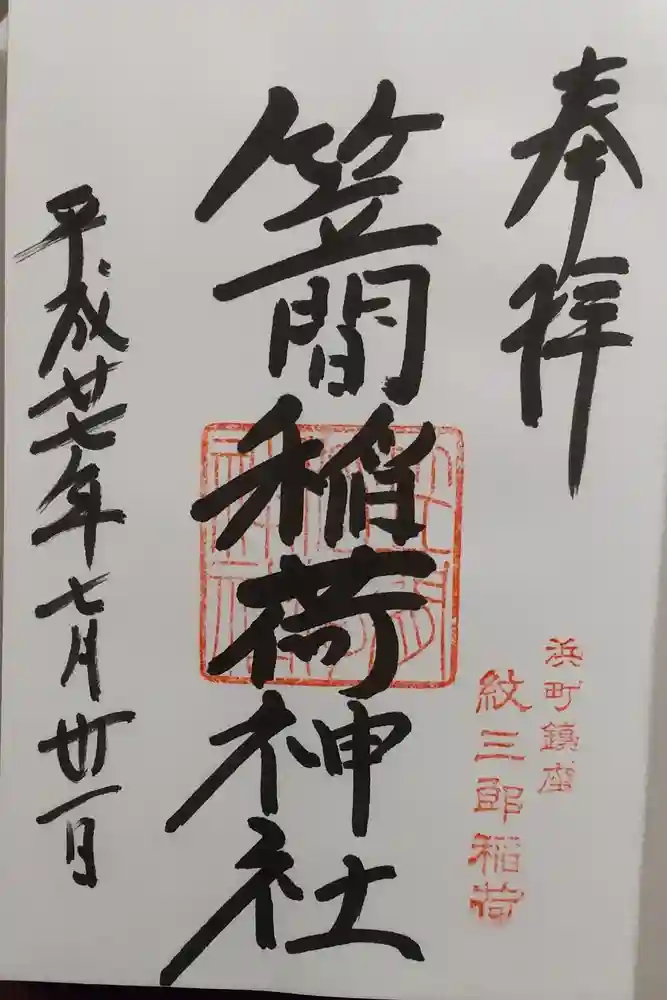 奉拝
浜町鎮座
紋三郎稲荷
笠間稲荷神社
平成廿七年七月廿一日